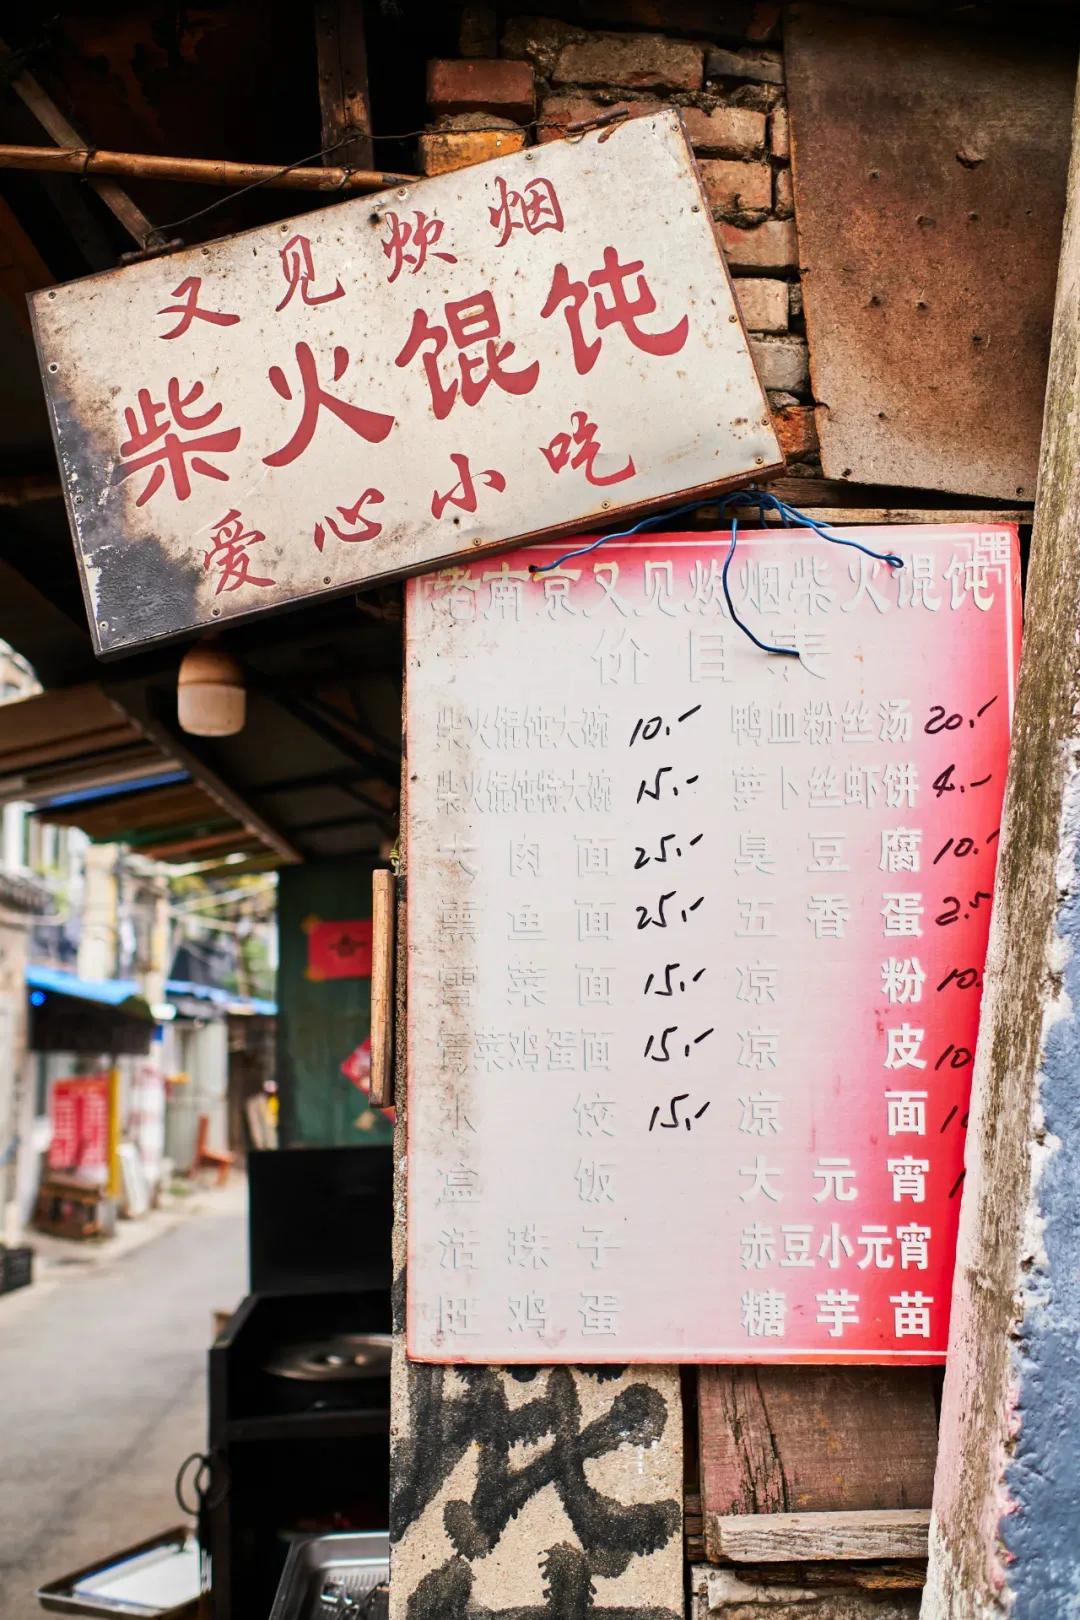 又见炊烟
柴火馄饨
爱心小吃
老南京又见炊烟柴火馄饨
价目表
柴火馄饨大碗 10.- 鸭血粉丝汤 20.-
柴火馄饨特大碗 15.- 萝卜丝虾饼 4.-
大肉面 25.- 臭豆腐 10.-
熏鱼面 25.- 五香蛋 2.5
雪菜面 15.- 凉粉 10.
雪菜鸡蛋面 15.- 凉皮 10
水饺 15.- 凉面
盒饭 大元宵
活珠子 赤豆小元宵
旺鸡蛋 糖芋苗